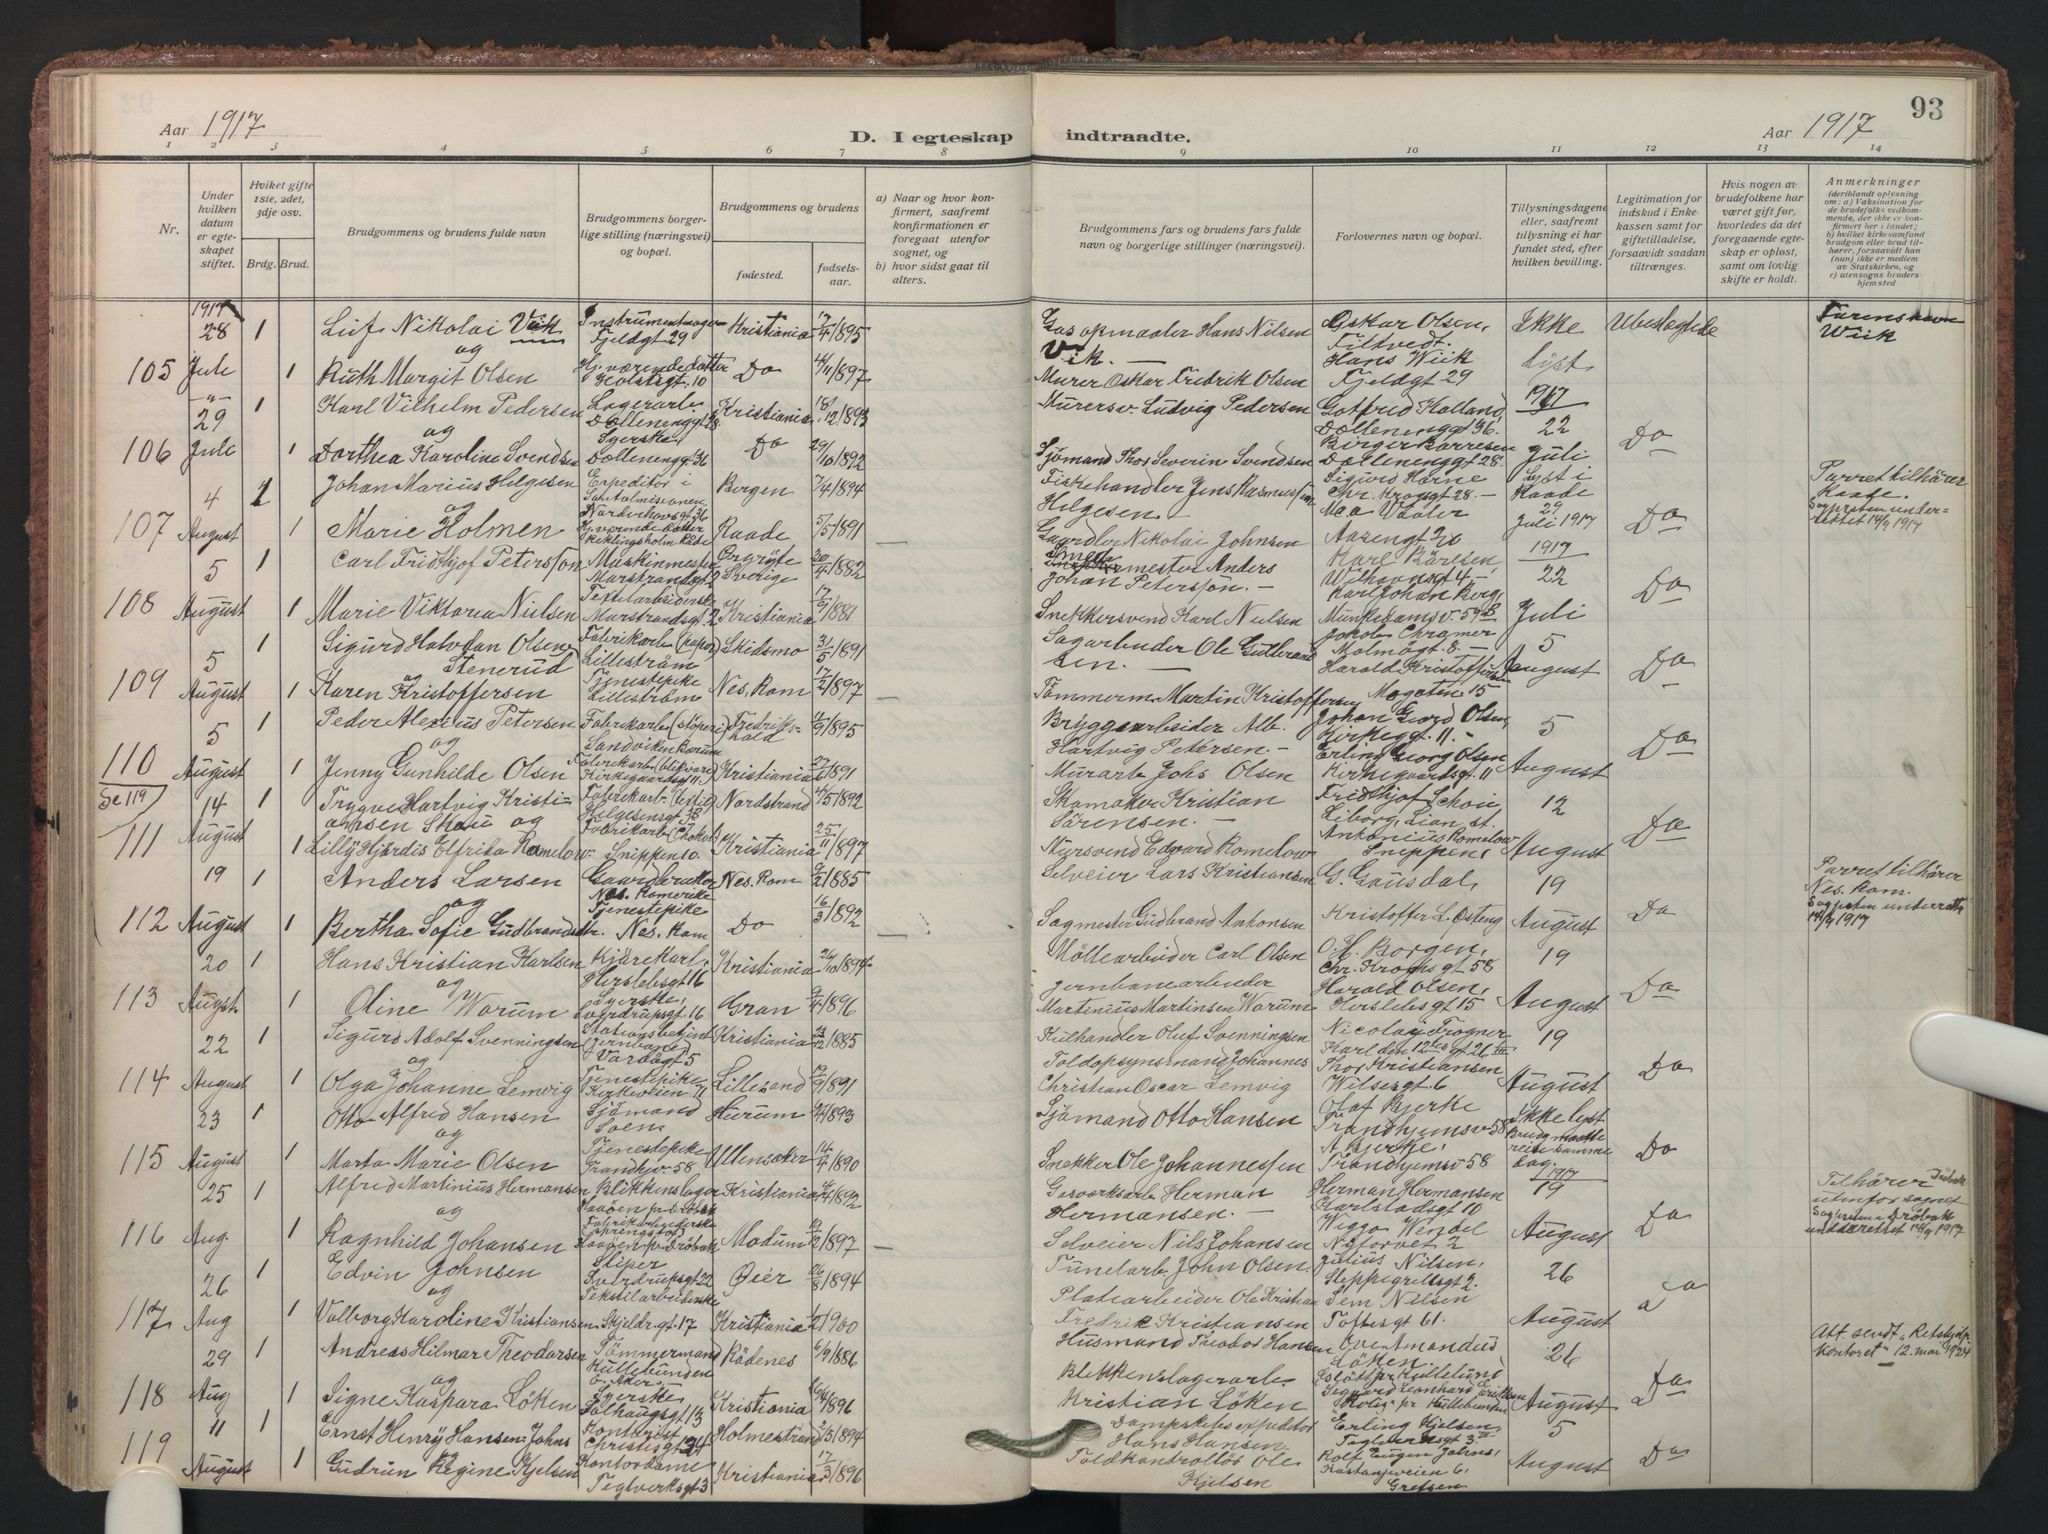 Aar 1917
D. I egteskap indtraadte.
Aar 1917
93
1 2 3 4 5 6 7 8 9 10 11 12 13 14
Nr.
Under hvilken datum er egteskapet stiftet.
Hviket gifte 1ste, 2det, 3dje osv.
Brdg. Brud.
Brudgommens og brudens fulde navn
Brudgommens borgerlige stilling (næringsvei) og bopæl.
Brudgommens og brudens
fødested.
fødselsaar.
a) Naar og hvor konfirmert, saafremt konfirmationen er foregaat utenfor sognet, og
b) hvor sidst gaat til alters.
Brudgommens fars og brudens fars fulde navn og borgerlige stillinger (næringsvei).
Forlovernes navn og bopæl.
Tillysningsdagene eller, saafremt tillysning ei har fundet sted, efter hvilken bevilling.
Legitimation for indskud i Enkekassen samt for giftetilladelse, forsaavidt saadan tiltrænges.
Hvis nogen av brudefolkene har været gift før, hvorledes da det foregaaende egteskap er opløst, samt om lovlig skifte er holdt.
Anmerkninger
(deriblandt oplysning om: a) Vaksination for de brudefolks vedkommende, der ikke er konfirmert her i landet; b) hvilket kirkesamfund brudgom eller brud tilhører, forsaavidt han (hun) ikke er medlem av Statskirken, og c) utensogns bruders hjemsted
1917
105 28 Juli 1 Leif Nikolai Wiik Instrumentmager Fjeldgt 29 Kristiania 17/4 1895 Gasopmaaler Hans Nilsen Vik. Oskar Olsen, Filtvedt. Ikke lyst Ubeslegtede Farens navn Wiik
og
1 Ruth Margit Olsen Hj.værende datter Holstsgt. 10 Do 1897 Murer Oskar Fredrik Olsen Hans Wiik Fjeldgt 29
106 29 Juli 1 Karl Vilhelm Pedersen Lagerarb. Kristiania 18/12 1893 Murersv. Ludvig Pedersen Gotfred Holland, 1917 22 Juli Do
og
1 Dorthea Karoline Svendsen Syerske, Do 29/10 1892 Sjömand Thor Severin Svendsen Birger Børresen
107 4 August 1 Johan Marius Helgesen Expeditör i Bergen 7/4 1894 Fiskehandler Jens Rasmussen Helgesen Sigurd Horne Chr. Krogsgt 28. Lyst i Raade 29 Juli 1917 Do Parret tilhører Raade. Sogpresten underrettet 14/9 1917
og
1 Marie Holmen Hj. værende datter Raade 5/5 1891 Gaardbr Nikolai Johnsen Aasengt 20
108 5 August 1 Carl Fridthjof Petersson Maskinmester Marstrandgt 2 Sverige 30/4 1882 mester Anders Johan Petersson. Karl Wilh 1917 22 Juli Do
1 Marie Viktoria Nielsen Marstrandsgt 2 Kristiania 17/9 1881 Snekkersvend Karl Nielsen Karl Johan Berg, Munkedamsv. 59
109 5 August 1 Sigurd Halvdan Olsen Stenerud Fabrikarb (papir) Lilleström Skidsmo 31/5 1891 Sagarbeider Ole Gulbrandsen. Jakob Chramer Malmögt. 8. 5 August Do
og
1 Karen Kristoffersen Tjenestepike Lilleström Nes. Rom 17/2 1897 Tömmerm. Martin Kristoffersen Harald Kristoffersen
110 5 August 1 Peder Alexius Petersen Fabrikarb (støperi) Sandviken Bærum Fredrikshald 1895 Bryggearbeider Alb. Hartvig Petersen. Johan Gerard Olsen, Kirkeggt. 11. 5 August Do
og
1 Jenny Gunhilde Olsen Kirkegaardsgt 11. Kristiania 27/6 1891 Murarb. Johs Olsen Erling Georg Olsen Kirkegaardsgt. 11
Se 119
111 14 August 1 Trygve Hartvig Kristiansen Skou og Fabrikarb. (textil) Helgesensgt 38 Nordstrand 5 1892 Skomaker Kristian Sörensen. Fridthjof Schou Liborg, Lian st. 12 August Do
1 Lilly Hjördis Elfrida Romelow Fabrikarb. (Chokol. Snippen 10. Kristiania 25/11 1897 Mursvend Edvard Romelow Antonius Romelow Snippen,
112 19 August 1 Anders Larsen Gaardbruker Nes. Romerike Nes. Rom 9/2 1885 Selveier Lars Kristiansen G. Gausdal, 19 August Do Parret tilhører Nes. Rom. Sogpresten underrettet 14/9 1917
og
1 Bertha Sofie Gudbrandsdtr. Tjenestepike Nes. Rom Do 16/3 1892 Sagmester Gudbrand Antonsen Kristoffer L. Österg
113 20 August. 1 Hans Kristian Karlsen Kjörekarl, Herslebsgt 16 Kristiania 26/10 1894 Möllearbeider Carl Olsen O. H. Borgen, Chr. Kroghsgt 58 19 August Do
og
1 Oline Worum Syerske, Sverdrupsgt. 16 Gran 9/4 1896 Jernbanearbeider Martinius Martinsen Worum Harald Olsen, Herslebsgt 15
114 22 August 1 Sigurd Adolf Svenningsen Stationsbetjent (Jernbane) Vardegt 5 Kristiania 23/12 1885 Kulhandler Oluf Svenningsen Nicolay Frogner Karl den 12tes gt 26 III 19 August Do
og
1 Olga Johanne Lemvig Tjenestepike Kirkeveien 71 Lillesand 19/9 1891 Toldopsynsmand Johannes Christian Oscar Lemvig Thor Kristiansen Wilsesgt 6
115 23 August 1 Otto Alfred Hansen Sjömand Hurum 1893 Sjömand Otto Hansen Olaf Bjerke Trondhjemsv 58 Ikke lyst Brudg. maatte reise samme dag. Do
og
1 Marta Marie Olsen Tjenestepike Trondhjv. 58 Ullensaker 14/4 1890 Snekker Ole Johannessen A. Bjerke, Trondhjemsv 58
116 25 Aug. 1 Alfred Martinius Hermansen Blikkenslager Haaöen pr. Dröbak Kristiania 1892 Gasværksarb Herman Hermansen. Herman Hermansen Karlstadsgt 10 1917 19 August Do Tilhører Dröbak utenfor sognet Sogpresten i Dröbak underrettet 14/9 1917
og
1 Ragnhild Johansen Fabrikarbeiderske Haaöen pr. Dröbak Modum 19/2 1897 Selveier Nils Johansen Wiggo Wendel Nytorvet 2
117 26 Aug 1 Edvin Johnsen Sliper Sverdrupsgt 22 Øier 26/8 1894 Tunelarb. John Olsen Julius Nilsen, Steppegrellsgt 2. 26 August Do
og
1 Valborg Karoline Kristiansen Tekstilarbeiderske Skjeldr.gt. 17 Kristiania 1900 Platearbeider Ole Kristian Fredrik Kristiansen Sem Nilsen Toftesgt 61.
118 29 Aug 1 Andreas Hilmar Theodorsen Tömmermand Hullebunden Ö. Aker. Rödenes 6/9 1886 Husmand Theodor Hansen Ove Amandus Löken 26 August Do Att. sendt „Retshjelpkontoret" 12. mai 1924
og
1 Signe Kaspara Löken Syerske Solhaugsgt 13 Kristiania 1896 Blikkenslagerarb. Kristian Löken Sigvard Leonhard Eriksen
119 11 August 1 Ernst Henry Hansen-Johns Kontorist Christiesgt 34 Holmestrand 1894 Dampskibsexpeditör Hans Hansen Erling Kjelsen, Teglverksgt 3. III 5 August Do
og
1 Gudrun Regine Kjelsen Kontordame Teglverksgt 3 Kristiania 17/3 1896 Toldkontrollör Ole Kjelsen Rolf Eugen Johns, Kastanjeveien 6, Grefsen